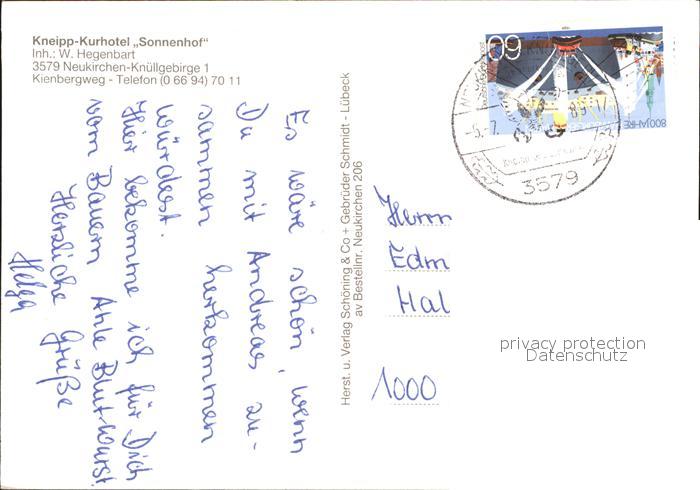 Kneipp-Kurhotel „Sonnenhof"
Inh.: W. Hegenbart
3579 Neukirchen-Knüllgebirge 1
Kienbergweg - Telefon (0 66 94) 70 11
Es wäre schön, wenn
Du mit Andreas zu-
sammen herkommen
würdest.
Hier bekomme ich für Dich
vom Bauern Ahle Blut-Wurst.
Herzliche Grüße
Helga
Herst. u. Verlag Schöning & Co + Gebrüder Schmidt - Lübeck
av Bestellnr. Neukirchen 206
60
800 JAHRE
-5.7. 89-17
3579
Herrn
Edm
Hal
1000
privacy protection
Datenschutz